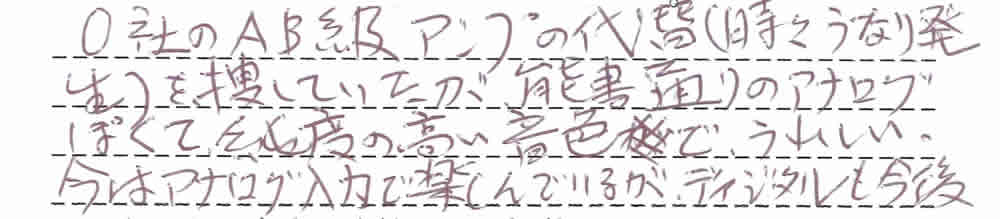 O社のAB級アンプの代替(時々うなり発
生)を捜していたが、能書通りのアナログ
ぽくて純度の高い音色で、うれしい。
今はアナログ入力で楽しんでいるが、ディジタルも今後